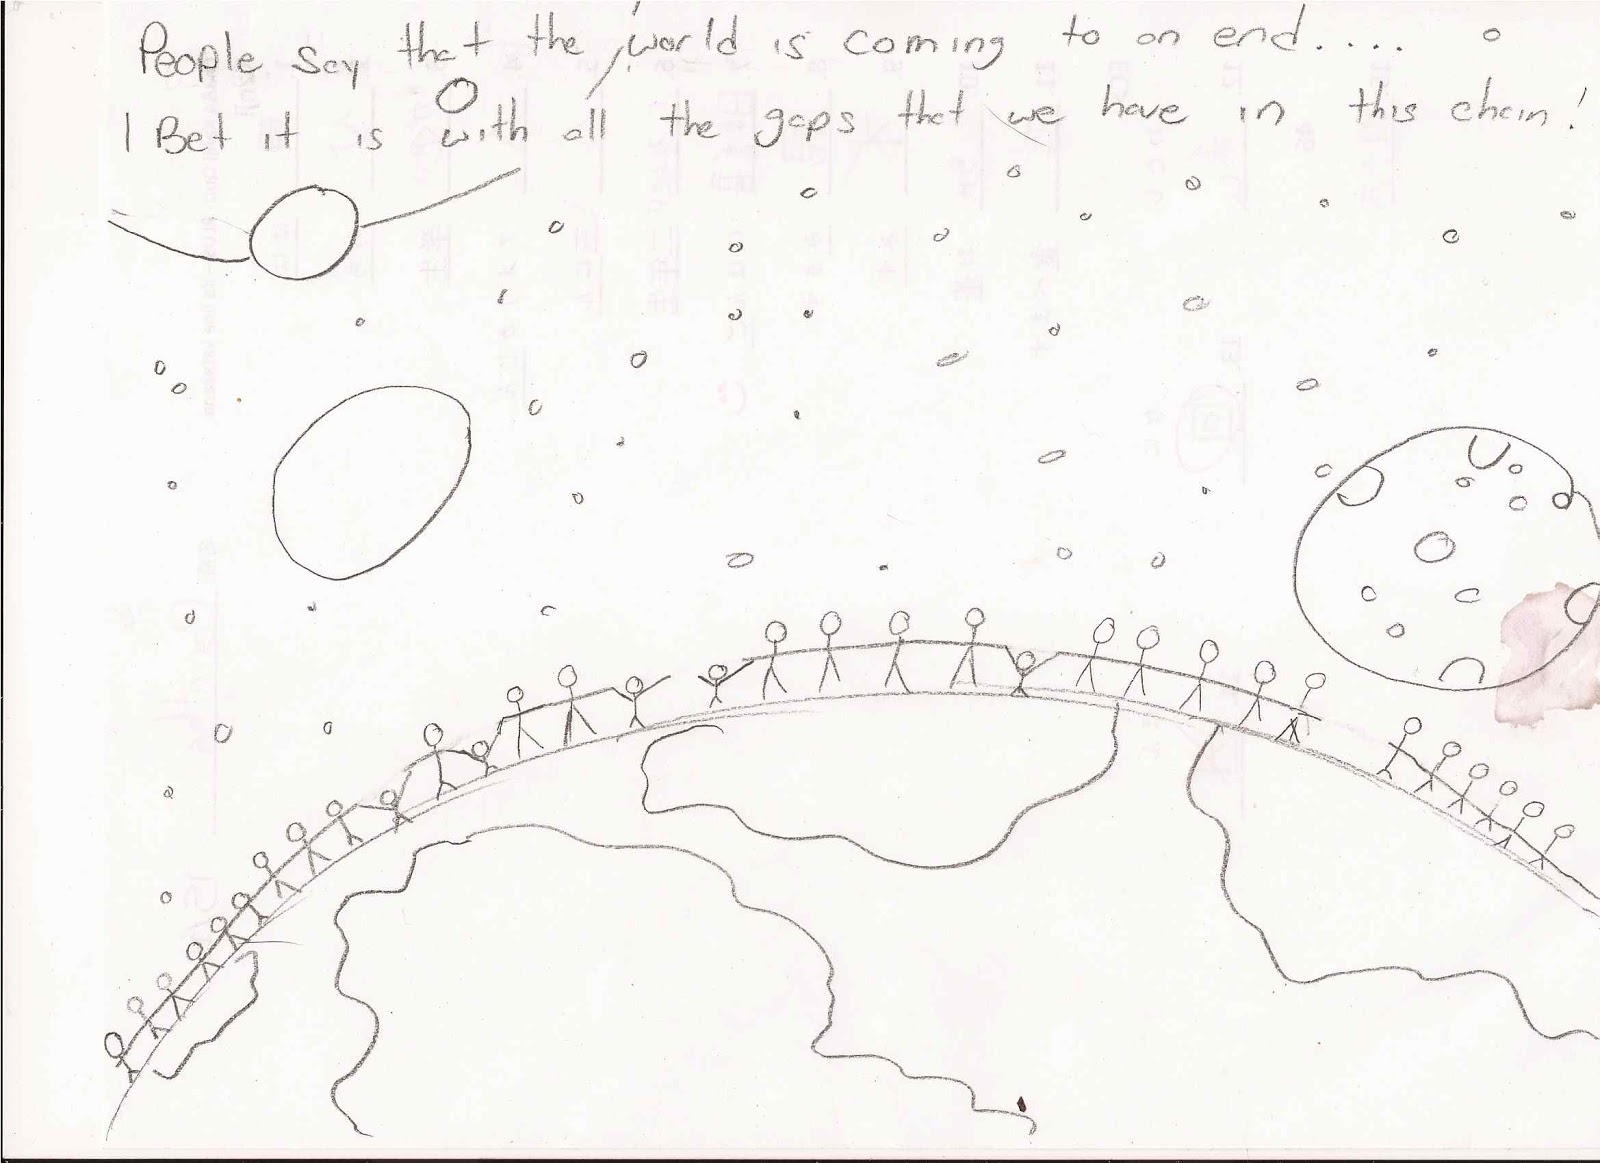 People say that the world is coming to an end.....
I Bet it is with all the gaps that we have in this chain!